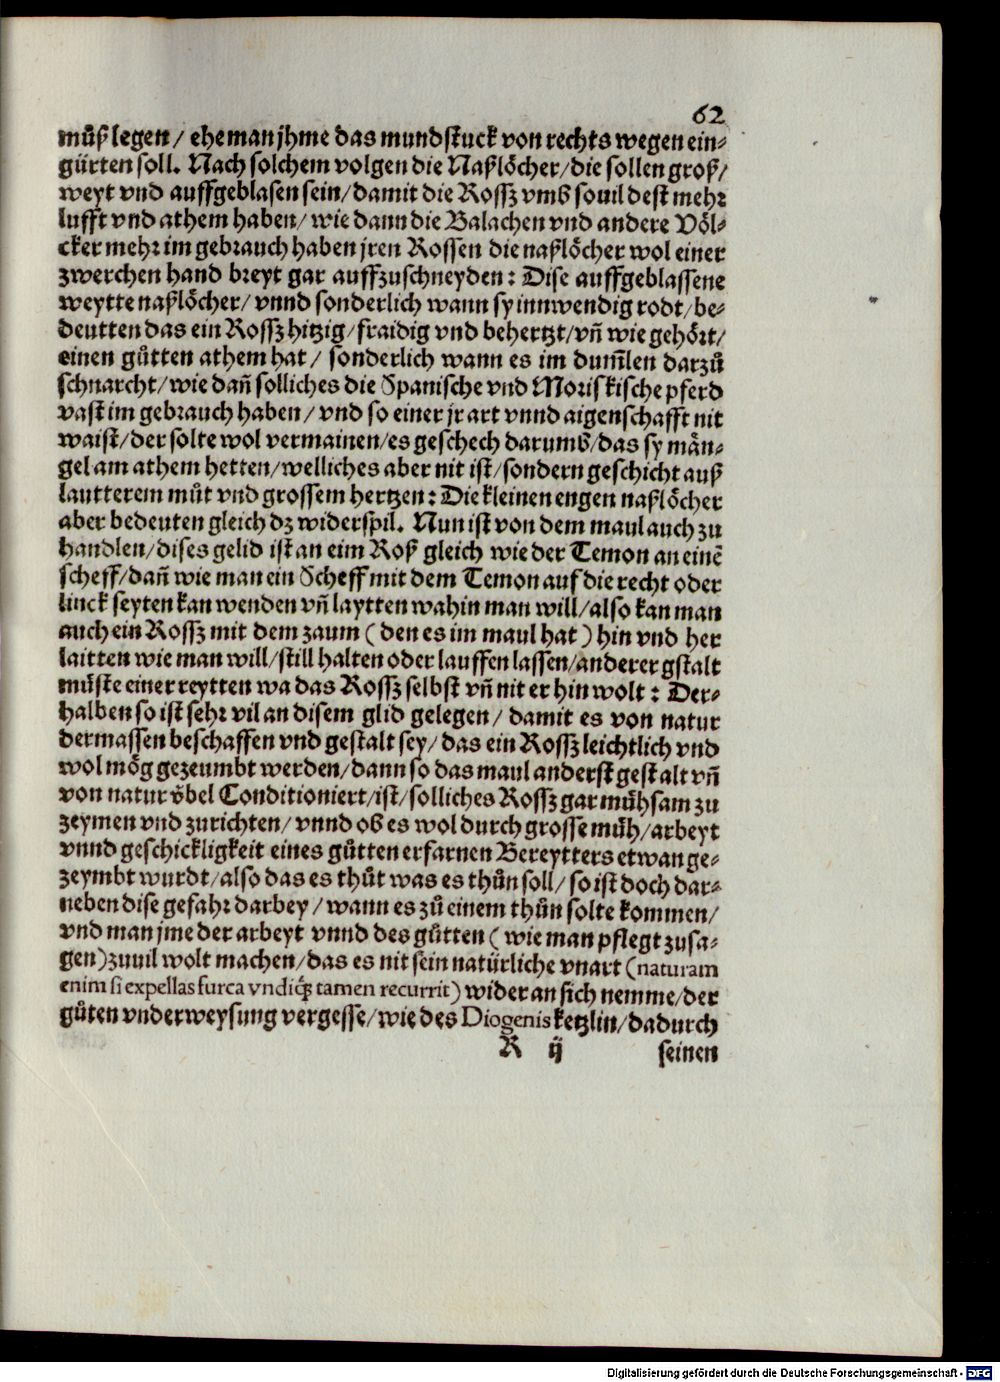 62
můß legen / ehe man jhme das mundstuck von rechts wegen ein⸗
gürten soll. Nach solchem volgen die Naßlöcher / die sollen groß /
weyt vnd auffgeblasen sein / damit die Rossz vmb souil dest mehr
lufft vnd athem haben / wie dann die Balachen vnd andere Völ⸗
cker mehr im gebrauch haben jren Rossen die naßlöcher wol einer
zwerchen hand breyt gar auffzuschneyden : Dise auffgeblassene
weytte naßlöcher / vnnd sonderlich wann sy innwendig rodt / be⸗
deutten das ein Rossz hitzig / fraidig vnd behertzt / vn̄ wie gehört /
einen gůtten athem hat / sonderlich wann es im dum̄len darzů
schnarcht / wie dan̄ solliches die Spanische vnd Moriskische pferd
vast im gebrauch haben / vnd so einer jr art vnnd aigenschafft nit
waist / der solte wol vermainen / es geschech darumb / das sy män⸗
gel am athem hetten / welliches aber nit ist / sondern geschicht auß
lautterem můt vnd grossem hertzen : Die kleinen engen naßlöcher
aber bedeuten gleich dz widerspil. Nun ist von dem maul auch zu
handlen / dises gelid ist an eim Roß gleich wie der Temon an einē
scheff / dan̄ wie man ein Scheff mit dem Temon auf die recht oder
linck seyten kan wenden vn̄ laytten wahin man will / also kan man
auch ein Rossz mit dem zaum ( den es im maul hat ) hin vnd her
laitten wie man will / still halten oder lauffen lassen / anderer gstalt
müste einer reytten wa das Rossz selbst vn̄ nit er hin wolt : Der⸗
halben so ist sehr vil an disem glid gelegen / damit es von natur
dermassen beschaffen vnd gestalt sey / das ein Rossz leichtlich vnd
wol mög gezeumbt werden / dann so das maul anderst gestalt vn̄
von natur v̈bel Conditioniert / ist / solliches Rossz gar mühsam zu
zeymen vnd zurichten / vnnd ob es wol durch grosse müh / arbeyt
vnnd geschickligkeit eines gůtten erfarnen Bereytters etwan ge⸗
zeymbt wurdt / also das es thůt was es thůn soll / so ist doch dar⸗
neben dise gefahr darbey / wann es zů einem thůn solte kommen /
vnd man jme der arbeyt vnnd des gůtten ( wie man pflegt zusa⸗
gen) zuuil wolt machen / das es nit sein natürliche vnart (naturam
enim si expellas furca vndiq; tamen recurrit) wider an sich nemme / der
gůten vnderweysung vergesse / wie des Diogenis ketzlin / dadurch
R ij seinen
Digitalisierung gefördert durch die Deutsche Forschungsgemeinschaft - DFG